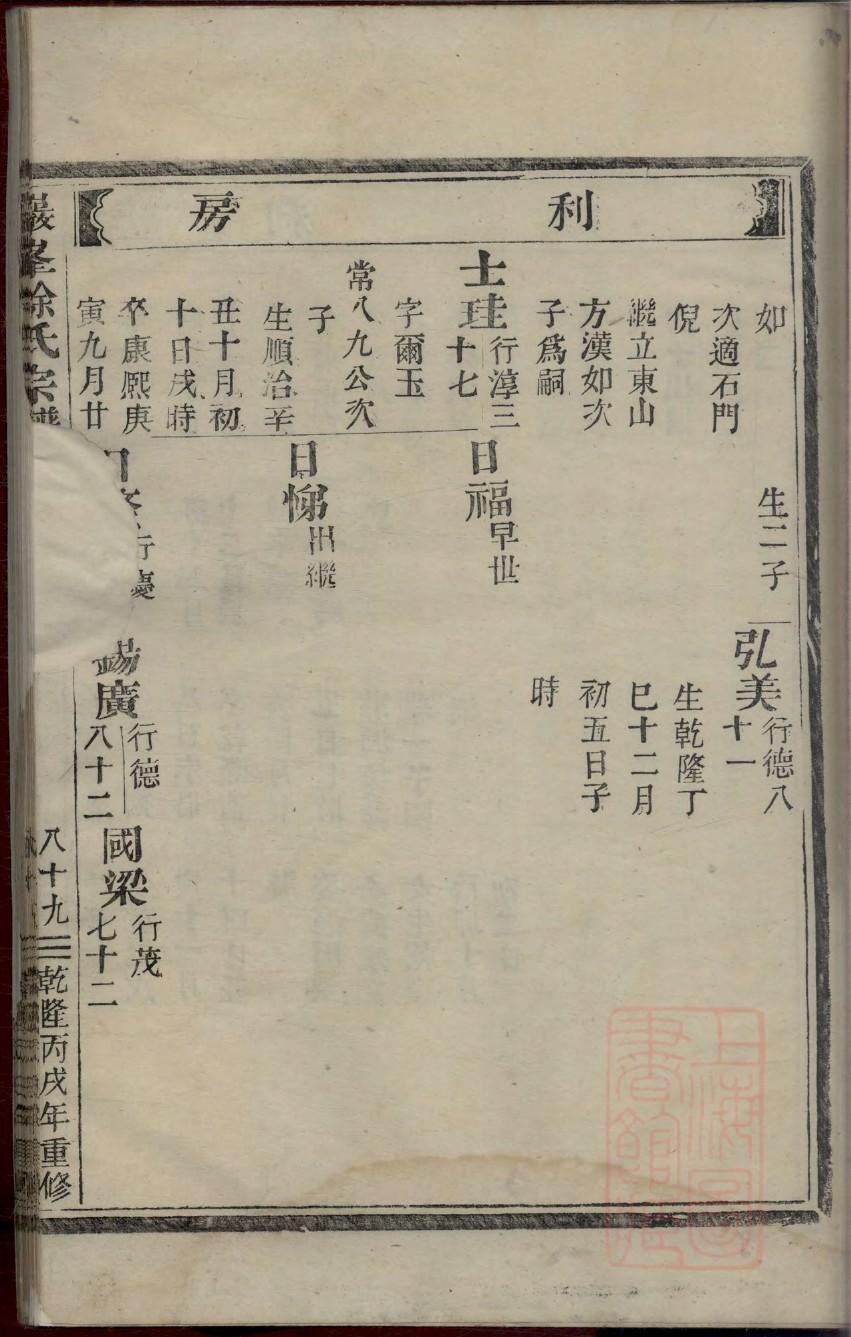 利房
如
次適石門
倪
繼立東山
方漢如次
子為嗣
士珪行淳三
十七
字爾玉
常八九公次
子
生順治辛
丑十月初
十日戌時
卒康熙庚
寅九月廿
生二子
日福早世
日悌出繼
行慶
弘美行德八
十一
生乾隆丁
巳十二月
初五日子
時
錫廣行德
八十二
國梁行茂
七十二
巖峯徐氏宗譜
八十九
乾隆丙戌年重修
上海圖書館藏